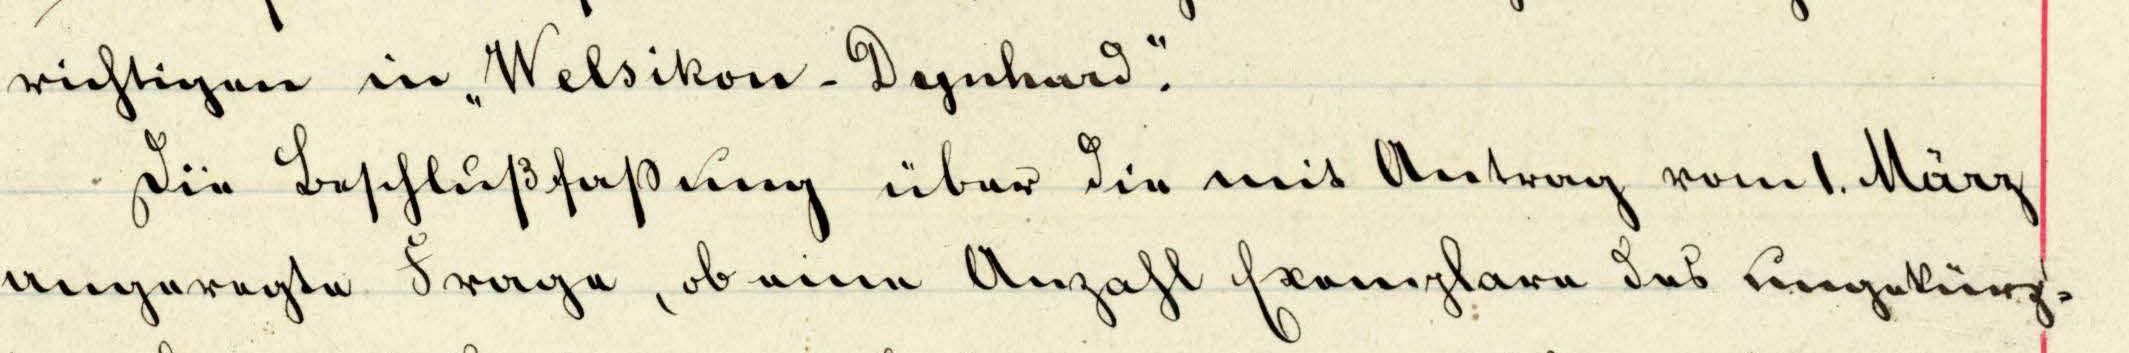 richtigen in „Welsikon-Degnhard“.
Die Beschlußfaßung über die mit Antrag vom 1. März
angeregte Frage, ob eine Anzahl Exemplare des ungekürz-